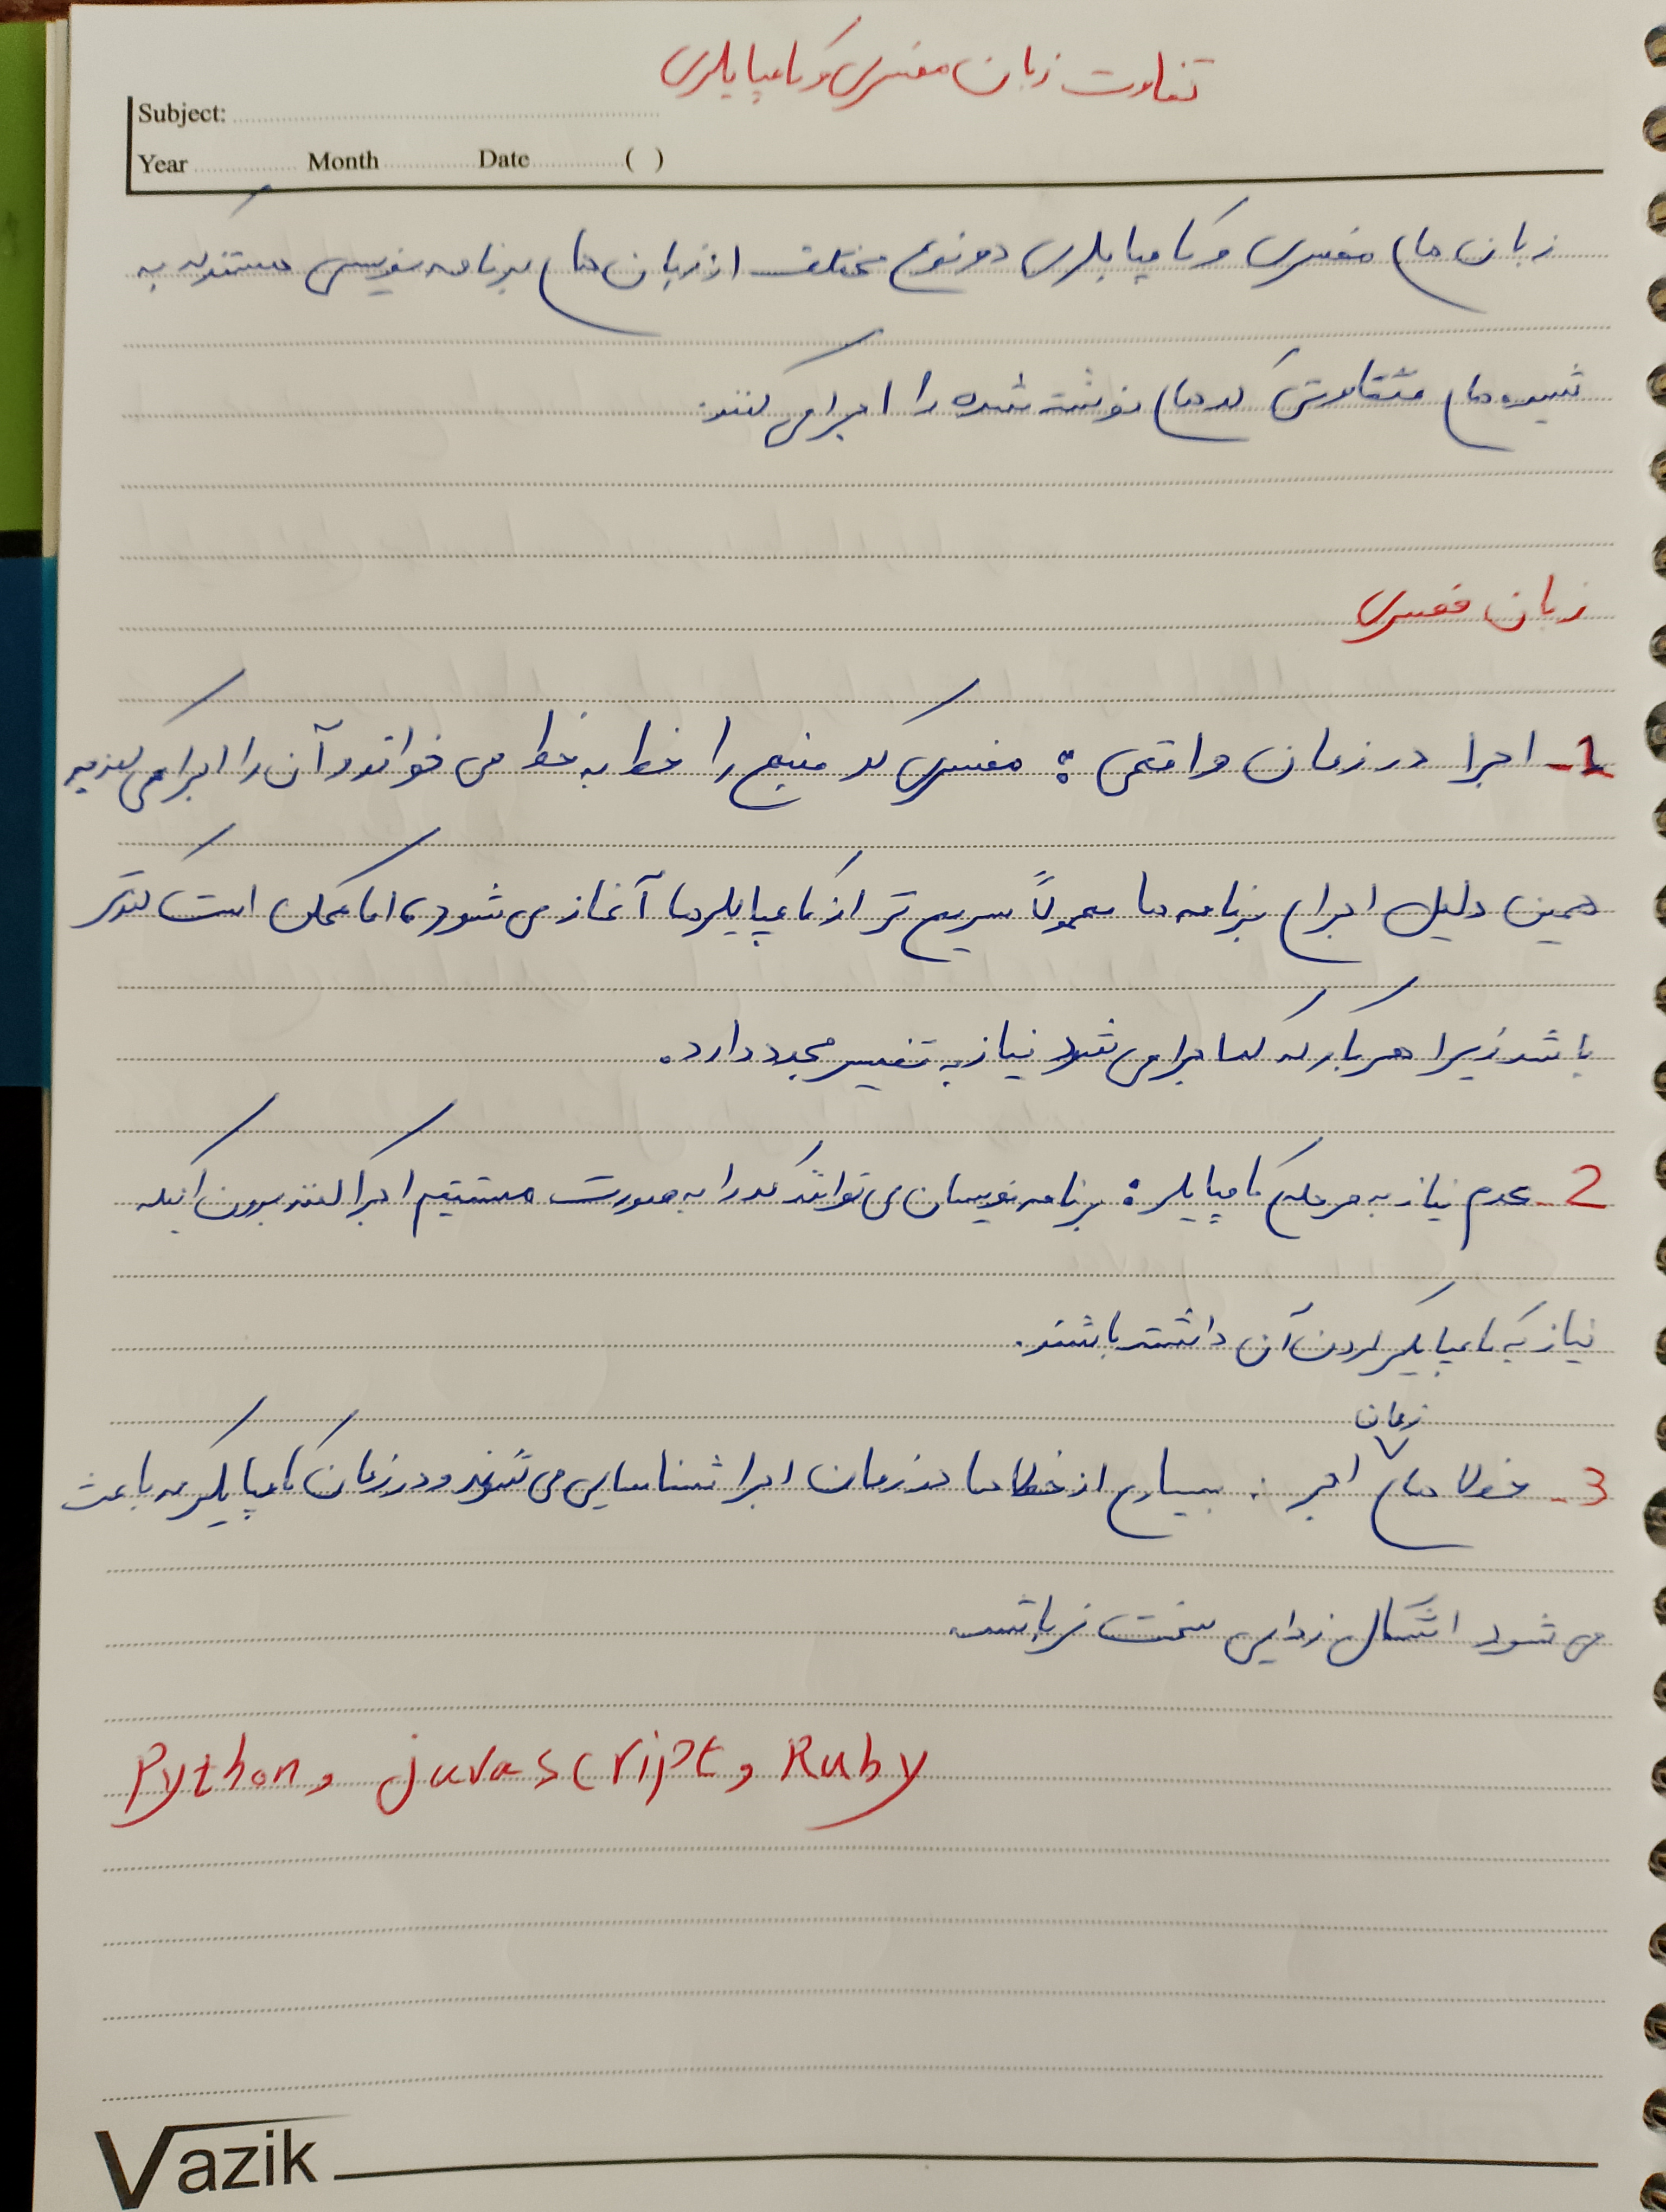 تفاوت زبان مفسری و کامپایلری
Subject:
Year Month Date ( )
زبان های مفسری و کامپایلری دو نوع مختلف از زبان های برنامه نویسی هستند که به
شیوه های متفاوتی کد های نوشته شده را اجرا می کنند.
زبان مفسری
1- اجرا در زمان واقعی : مفسری کد منبع را خط به خط می خواند و آن را اجرا می کند به
همین دلیل اجرای برنامه ها معمولاً سریع تر از کامپایلرها آغاز می شود، اما ممکن است کندتر
باشد زیرا هر بار که کد اجرا می شود نیاز به تفسیر مجدد دارد.
2- عدم نیاز به مرحله کامپایلر : برنامه نویسان می توانند کد را به صورت مستقیم اجرا کنند بدون اینکه
نیاز به کامپایلر کردن آن داشته باشند.
زمان
3- خطا های اجرا : بسیاری از خطا ها در زمان اجرا شناسایی می شوند و در زمان کامپایلر که باعث
می شود اشکال زدایی سخت تر باشد
Python, javascript, Ruby
Vazik